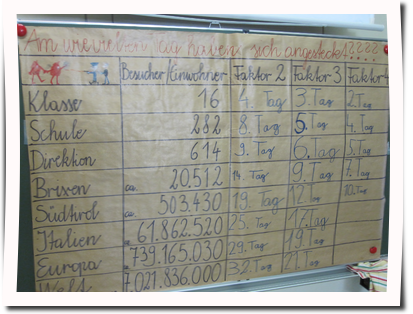 Am wievielten Tag haben sich angesteckt?????
Besucher/Einwohner Faktor 2 Faktor 3 Faktor 4
Klasse 16 4. Tag 3. Tag 2. Tag
Schule 282 8. Tag 5. Tag 4. Tag
Direktion 614 9. Tag 6. Tag 5. Tag
Brixen ca. 20.512 14. Tag 9. Tag 7. Tag
Südtirol ca. 503.430 19. Tag 12. Tag 10. Tag
Italien 61.862.520 25. Tag 17. Tag
Europa 739.165.030 29. Tag 19. Tag
Welt 7.021.836.000 32. Tag 21. Tag